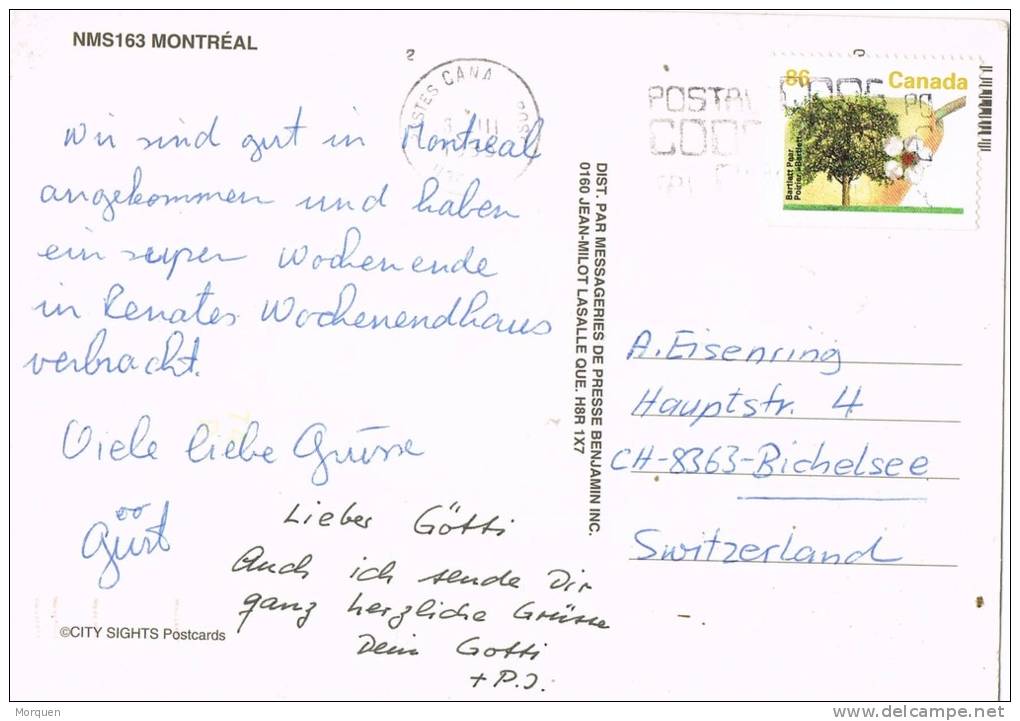 NMS163 MONTRÉAL
Wir sind gut in Montreal
angekommen und haben
ein super Wochenende
in Renates Wochenendhaus
verbracht.
Viele liebe Grüsse
Lieber Götti
Auch ich sende Dir
ganz herzliche Grüsse
Dein Gotti
+ P.J.
©CITY SIGHTS Postcards
DIST. PAR MESSAGERIES DE PRESSE BENJAMIN INC.
0160 JEAN-MILOT LASALLE QUE. H8R 1X7
POSTAL CODE
86 Canada
Bartlett Pear
Poirier à Bartlett
A. Eisenring
Hauptstr. 4
CH-8363-Bichelsee
Switzerland
Morquen
delcampe.net